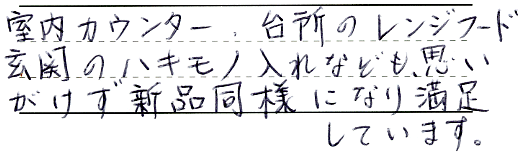 室内カウンター、台所のレンジフード
玄関のハキモノ入れなども、思い
がけず新品同様になり満足
しています。